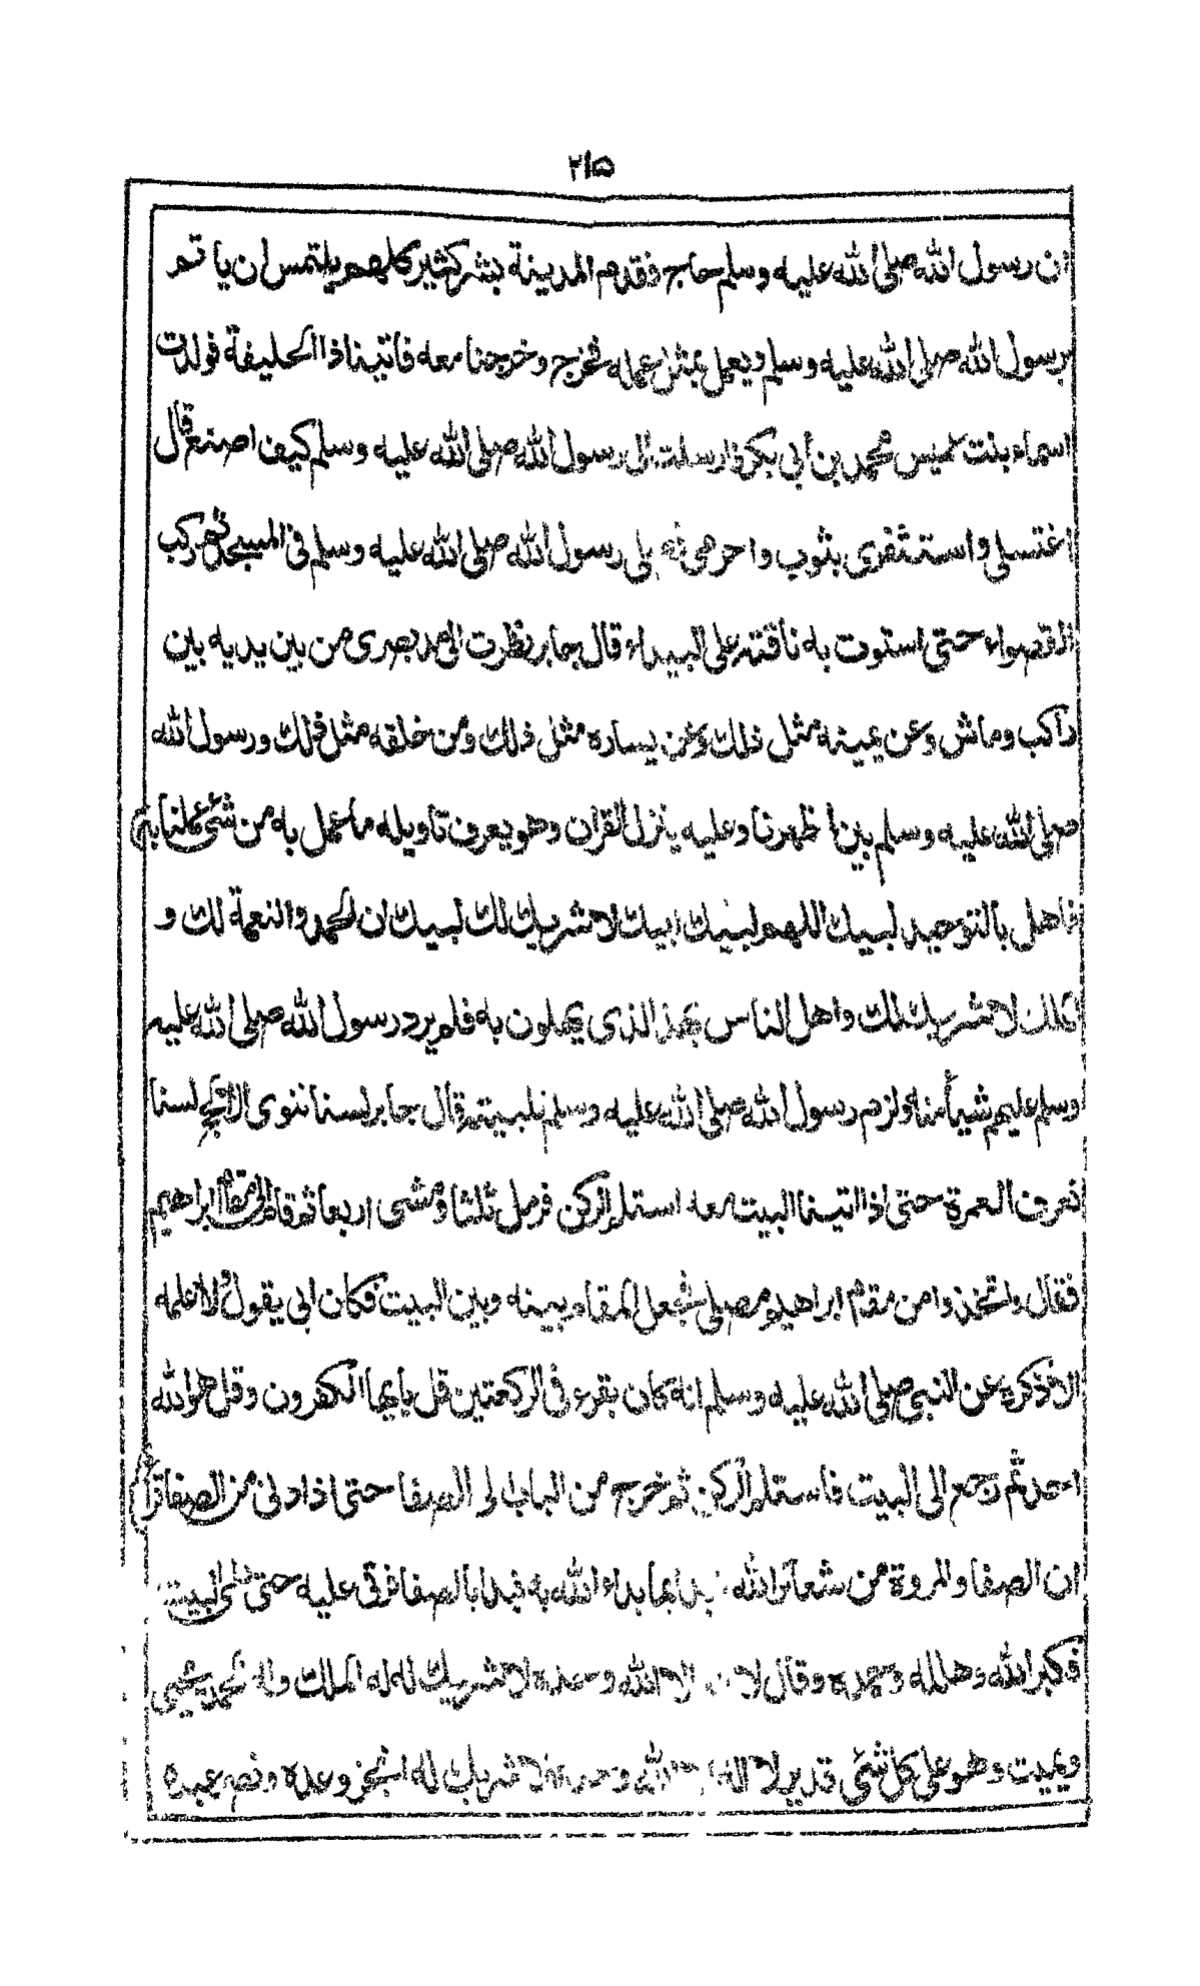 ٢١٥
ان رسول الله صلى الله عليه وسلم حاج فقدم المدينة بشر كثير كلهم يلتمس ان ياتم
برسول الله صلى الله عليه وسلم ويعمل بمثل عمله فخرج وخرجنا معه فاتينا ذا الحليفة فولدت
اسماء بنت عميس محمد بن ابي بكر فارسلت الى رسول الله صلى الله عليه وسلم كيف اصنع قال
اغتسلي واستثفرى بثوب واحرمى رسول الله صلى الله عليه وسلم في المسجد ثم ركب
القصواء حتى استوت به ناقته على البيداء قال جابر نظرت الى مد بصرى من بين يديه بين
راكب وماش وعن يمينه مثل ذلك وعن يساره مثل ذلك ومن خلفه مثل ذلك ورسول الله
صلى الله عليه وسلم بين اظهرنا وعليه ينزل القران وهو يعرف تاويله ما عمل به من شئ عملنا به
فاهل بالتوحيد لبيك اللهم لبيك لبيك لا شريك لك لبيك ان الحمد والنعمة لك و
الملك لا شريك لك واهل الناس بهذا الذى يهلون به فلم يرد رسول الله صلى الله عليه
وسلم عليهم شيأ منه ولزم رسول الله صلى الله عليه وسلم تلبيته قال جابر لسنا ننوى الا الحج لسنا
نعرف العمرة حتى اذا اتينا البيت معه استلم الركن فرمل ثلثا ومشى اربعا ثم قام الى مقام ابراهيم
فقال واتخذوا من مقام ابراهيم مصلى فجعل المقام بينه وبين البيت فكان ابي يقول ولا اعلمه
الا ذكره عن النبي صلى الله عليه وسلم انه كان يقرء في الركعتين قل يايها الكفرون وقل هو الله
احد ثم رجع الى البيت فاستلم الركن ثم خرج من الباب الى الصفا حتى اذا دنى من الصفا قرأ
ان الصفا والمروة من شعائر الله نبدأ بما بداء الله به فبدا بالصفا فرقى عليه حتى راى البيت
فكبر الله وهلله وحمده وقال لا اله الا الله وحده لا شريك له له الملك وله الحمد يحيي
ويميت وهو على كل شئ قدير لا اله الا الله وحده لا شريك له انجز وعده ونصر عبده